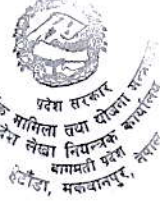 प्रदेश सरकार
मामिला तथा योजना
लेखा नियन्त्रक कार्यालय
बागमती प्रदेश
हेटौंडा, मकवानपुर, नेपाल